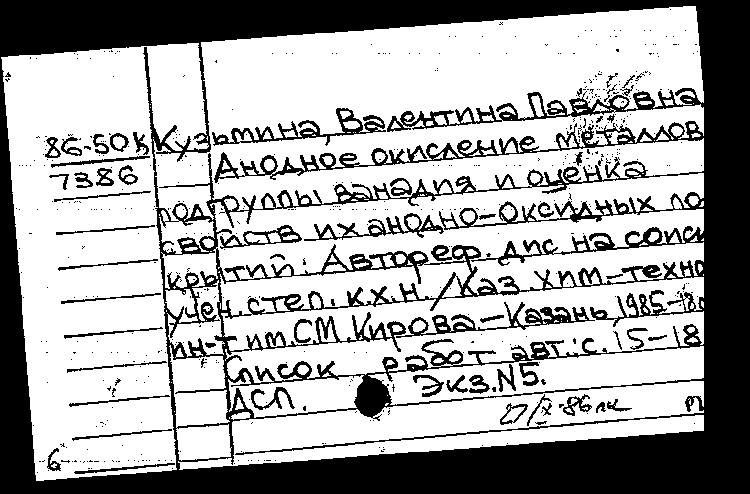 86-50к Кузьмина, Валентина Павловна
7386 Анодное окисление металлов
подгруппы ванадия и оценка
свойств их анодно-оксидных по
крытий: Автореф. дис. на соиск
учен. степ. к.х.н. / Каз. хим.-техно
ин-т им. С.М. Кирова. – Казань 1985 –18с
Список работ авт.: с. 15–18
ДСП. Экз. N5.
6